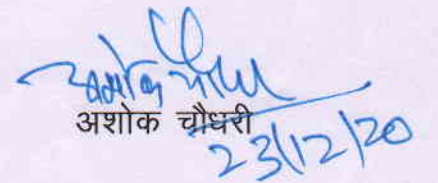 अशोक चौधरी
23/12/20